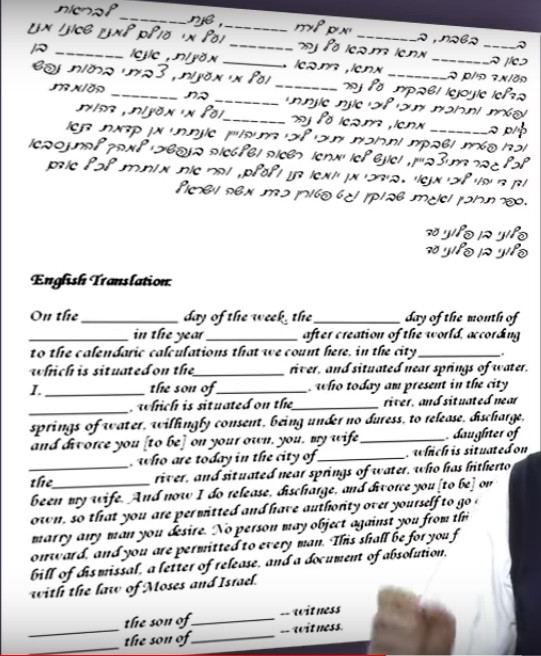 ב____ בשבת, ב________ ימים לירח ________, שנת________ לבריאת
עולם למנין שאנו מנין כאן ב________ מתא דיתבא על נהר ________ ועל מי
מעינות, אנא ________ בן ________ העומד היום ב________ מתא, דיתבא
על נהר ________ ועל מי מעינות, צביתי ברעות נפשי בדלא אניסנא ושבקית
ופטרית ותרוכית יתיכי ליכי אנת אנתתי ________ בת ________ העומדת
היום ב________ מתא, דיתבא על נהר ________ ועל מי מעינות, דהוית
אנתתי מן קדמת דנא וכדו פטרית ושבקית ותרוכית יתיכי ליכי דיתיהוויין
רשאה ושלטאה בנפשיכי למהך להתנסבא לכל גבר דיתיצבייין, ואנש לא ימחא
בידיכי מן יומא דנן ולעלם, והרי את מותרת לכל אדם ודן די יהוי ליכי מנאי
ספר תרוכין ואגרת שבוקין וגט פטורין כדת משה וישראל.
פלוני בן פלוני עד
פלוני בן פלוני עד
English Translation:
On the ____________ day of the week, the ____________ day of the month of
____________ in the year ____________ after creation of the world, according
to the calendaric calculations that we count here, in the city ____________,
which is situated on the____________ river, and situated near springs of water.
I, ____________ the son of____________, who today am present in the city
____________, which is situated on the____________ river, and situated near
springs of water, willingly consent, being under no duress, to release, discharge,
and divorce you [to be] on your own, you, my wife____________, daughter of
____________, who are today in the city of____________, which is situated on
the____________ river, and situated near springs of water, who has hitherto
been my wife. And now I do release, discharge, and divorce you [to be] on
own, so that you are permitted and have authority over yourself to go
marry any man you desire. No person may object against you from thi
onward, and you are permitted to every man. This shall be for you f
bill of dismissal, a letter of release, and a document of absolution,
with the law of Moses and Israel.
____________ the son of____________ -- witness
____________ the son of____________ -- witness.